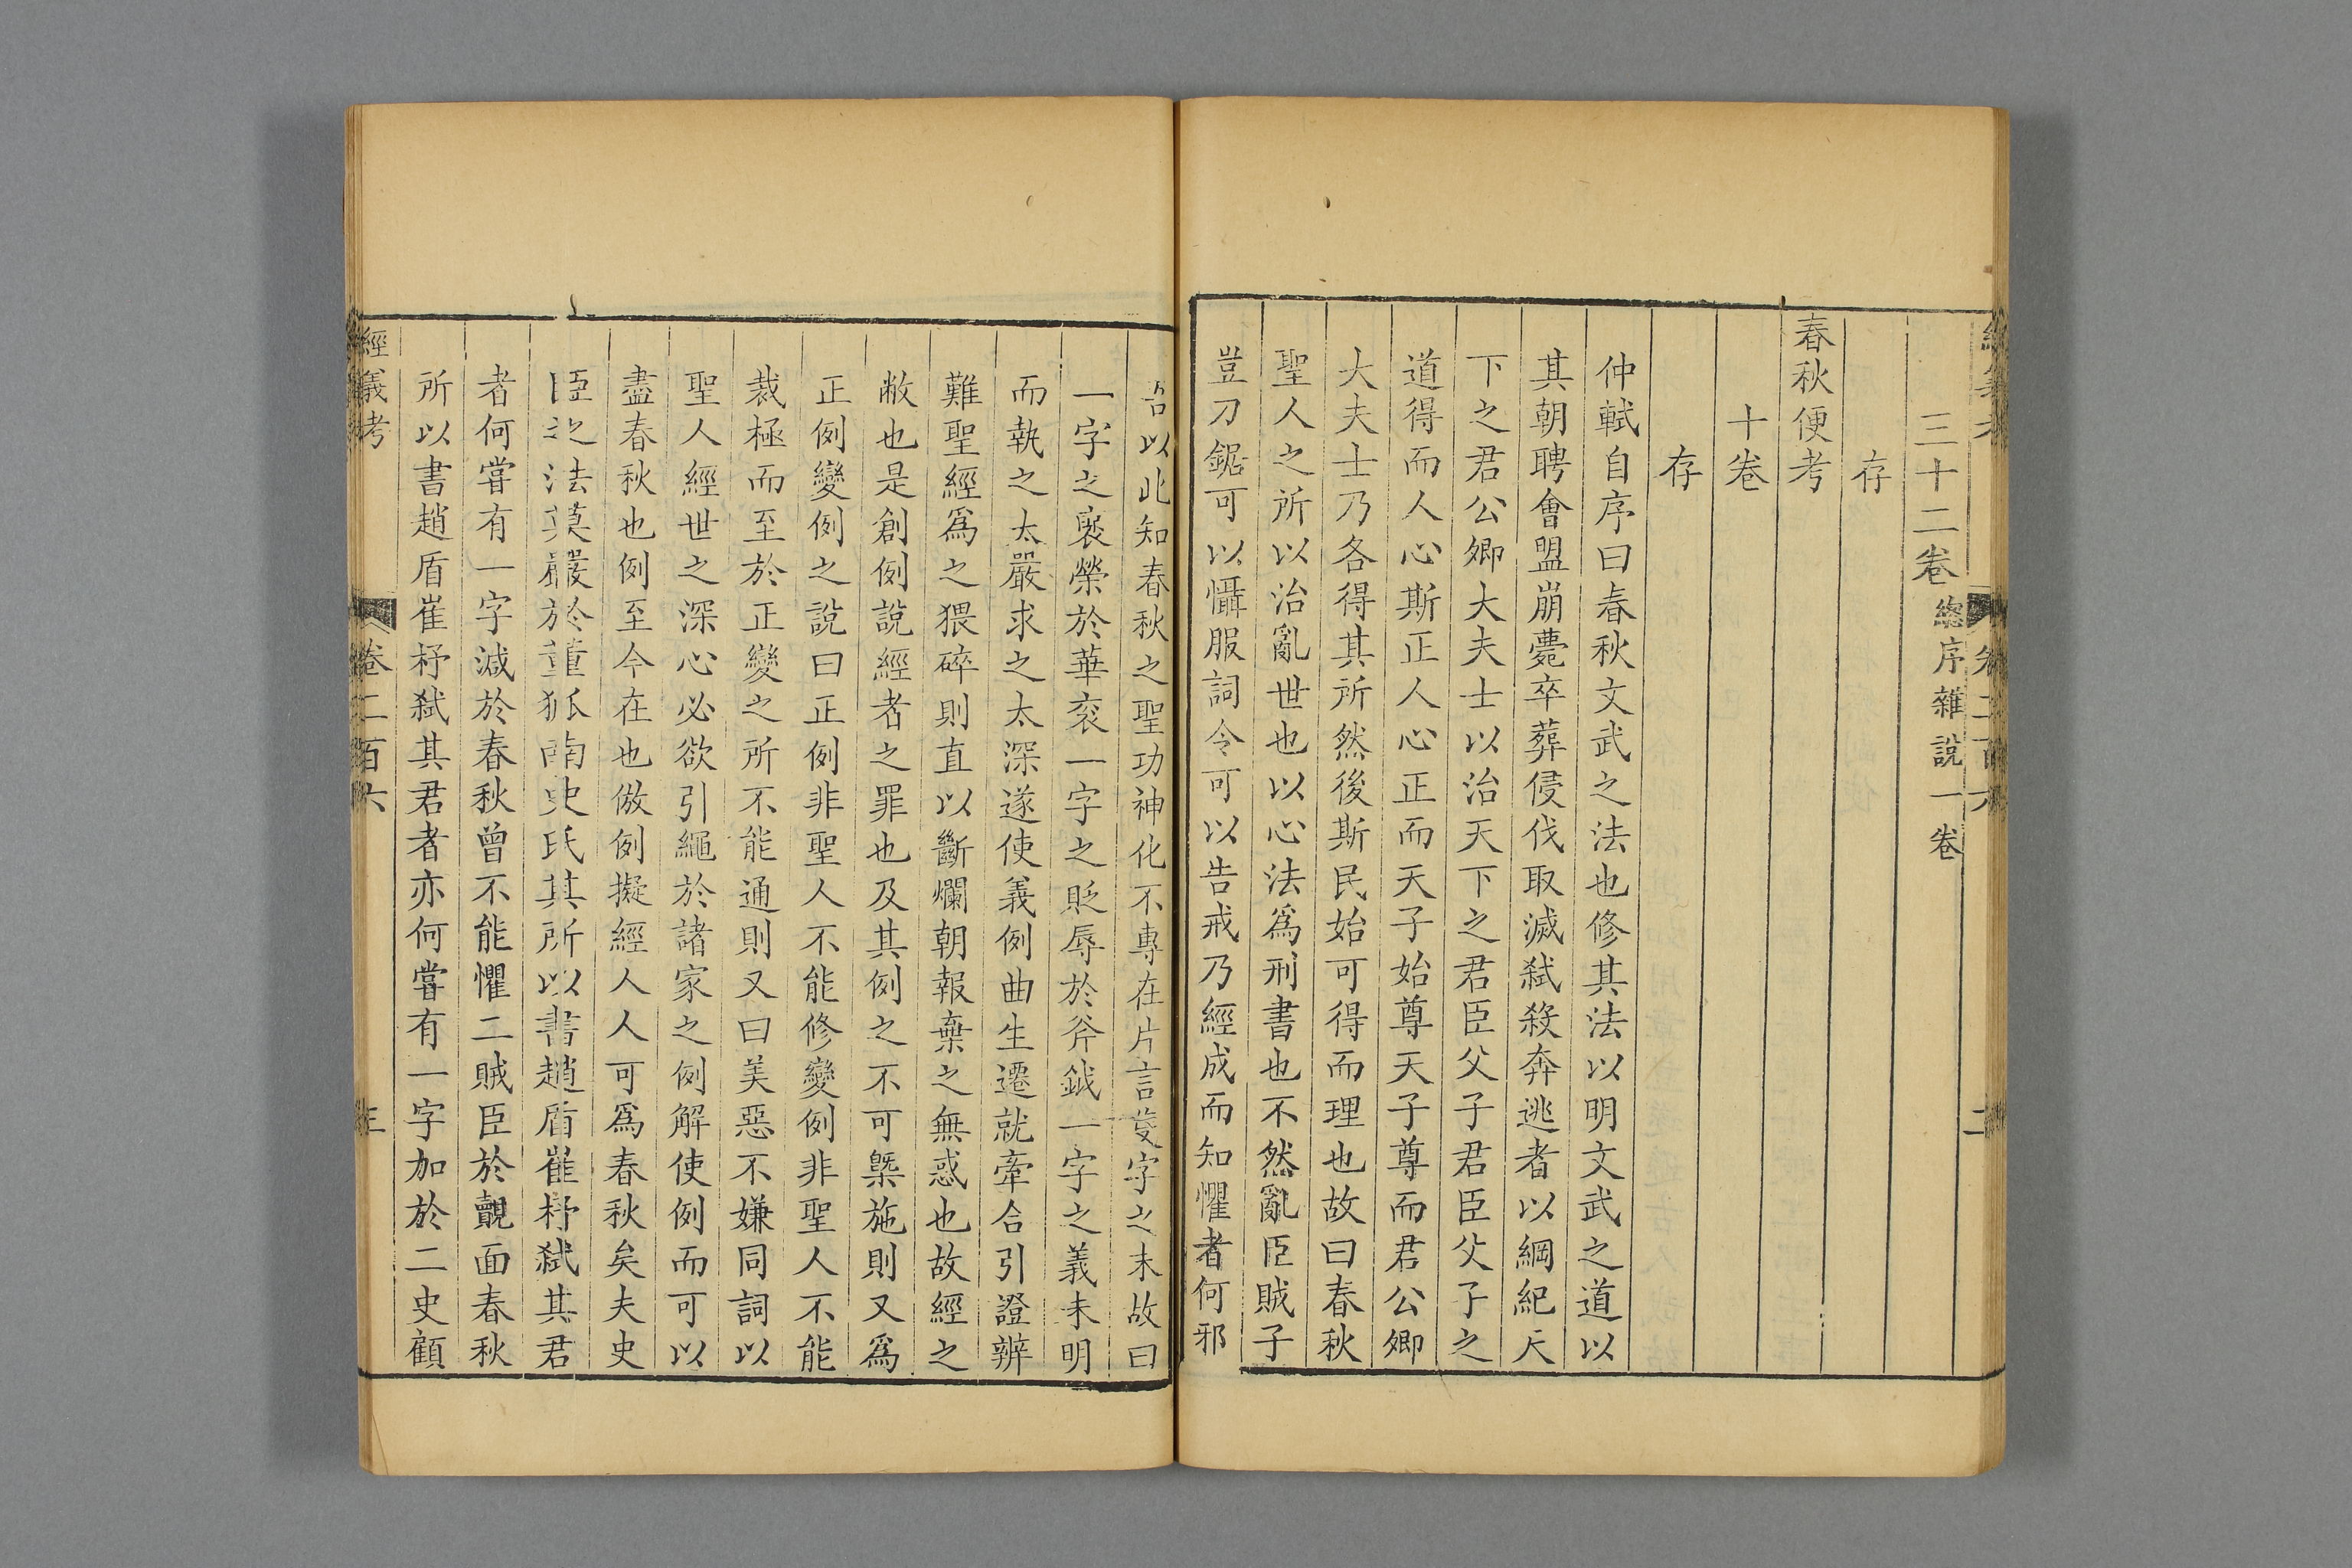 三十二卷總序雜說一卷
存
春秋便考
十卷
存
仲軾自序曰春秋文武之法也修其法以明文武之道以
其朝聘會盟崩薨卒葬侵伐取滅弑殺奔逃者以綱紀天
下之君公卿大夫士以治天下之君臣父子君臣父子之
道得而人心斯正人心正而天子始尊天子尊而君公卿
大夫士乃各得其所然後斯民始可得而理也故曰春秋
聖人之所以治亂世也以心法為刑書也不然亂臣賊子
豈刀鋸可以懾服詞令可以告戒乃經成而知懼者何邪
以此知春秋之聖功神化不專在片言隻字之末故曰
一字之襃榮於華衮一字之貶辱於斧鉞一字之義未明
而執之太嚴求之太深遂使義例曲生遷就牽合引證辨
難聖經為之猥碎則直以斷爛朝報棄之無惑也故經之
敝也是創例說經者之罪也及其例之不可槩施則又為
正例變例之說曰正例非聖人不能修變例非聖人不能
裁極而至於正變之所不能通則又曰美惡不嫌同詞以
聖人經世之深心必欲引繩於諸家之例解使例而可以
盡春秋也例至今在也倣例擬經人人可為春秋矣夫史
臣之法莫嚴於董狐南史氏其所以書趙盾崔杼弑其君
者何嘗有一字減於春秋曾不能懼二賊臣於覿面春秋
所以書趙盾崔杼弑其君者亦何嘗有一字加於二史顧
經義考 卷二百六 三